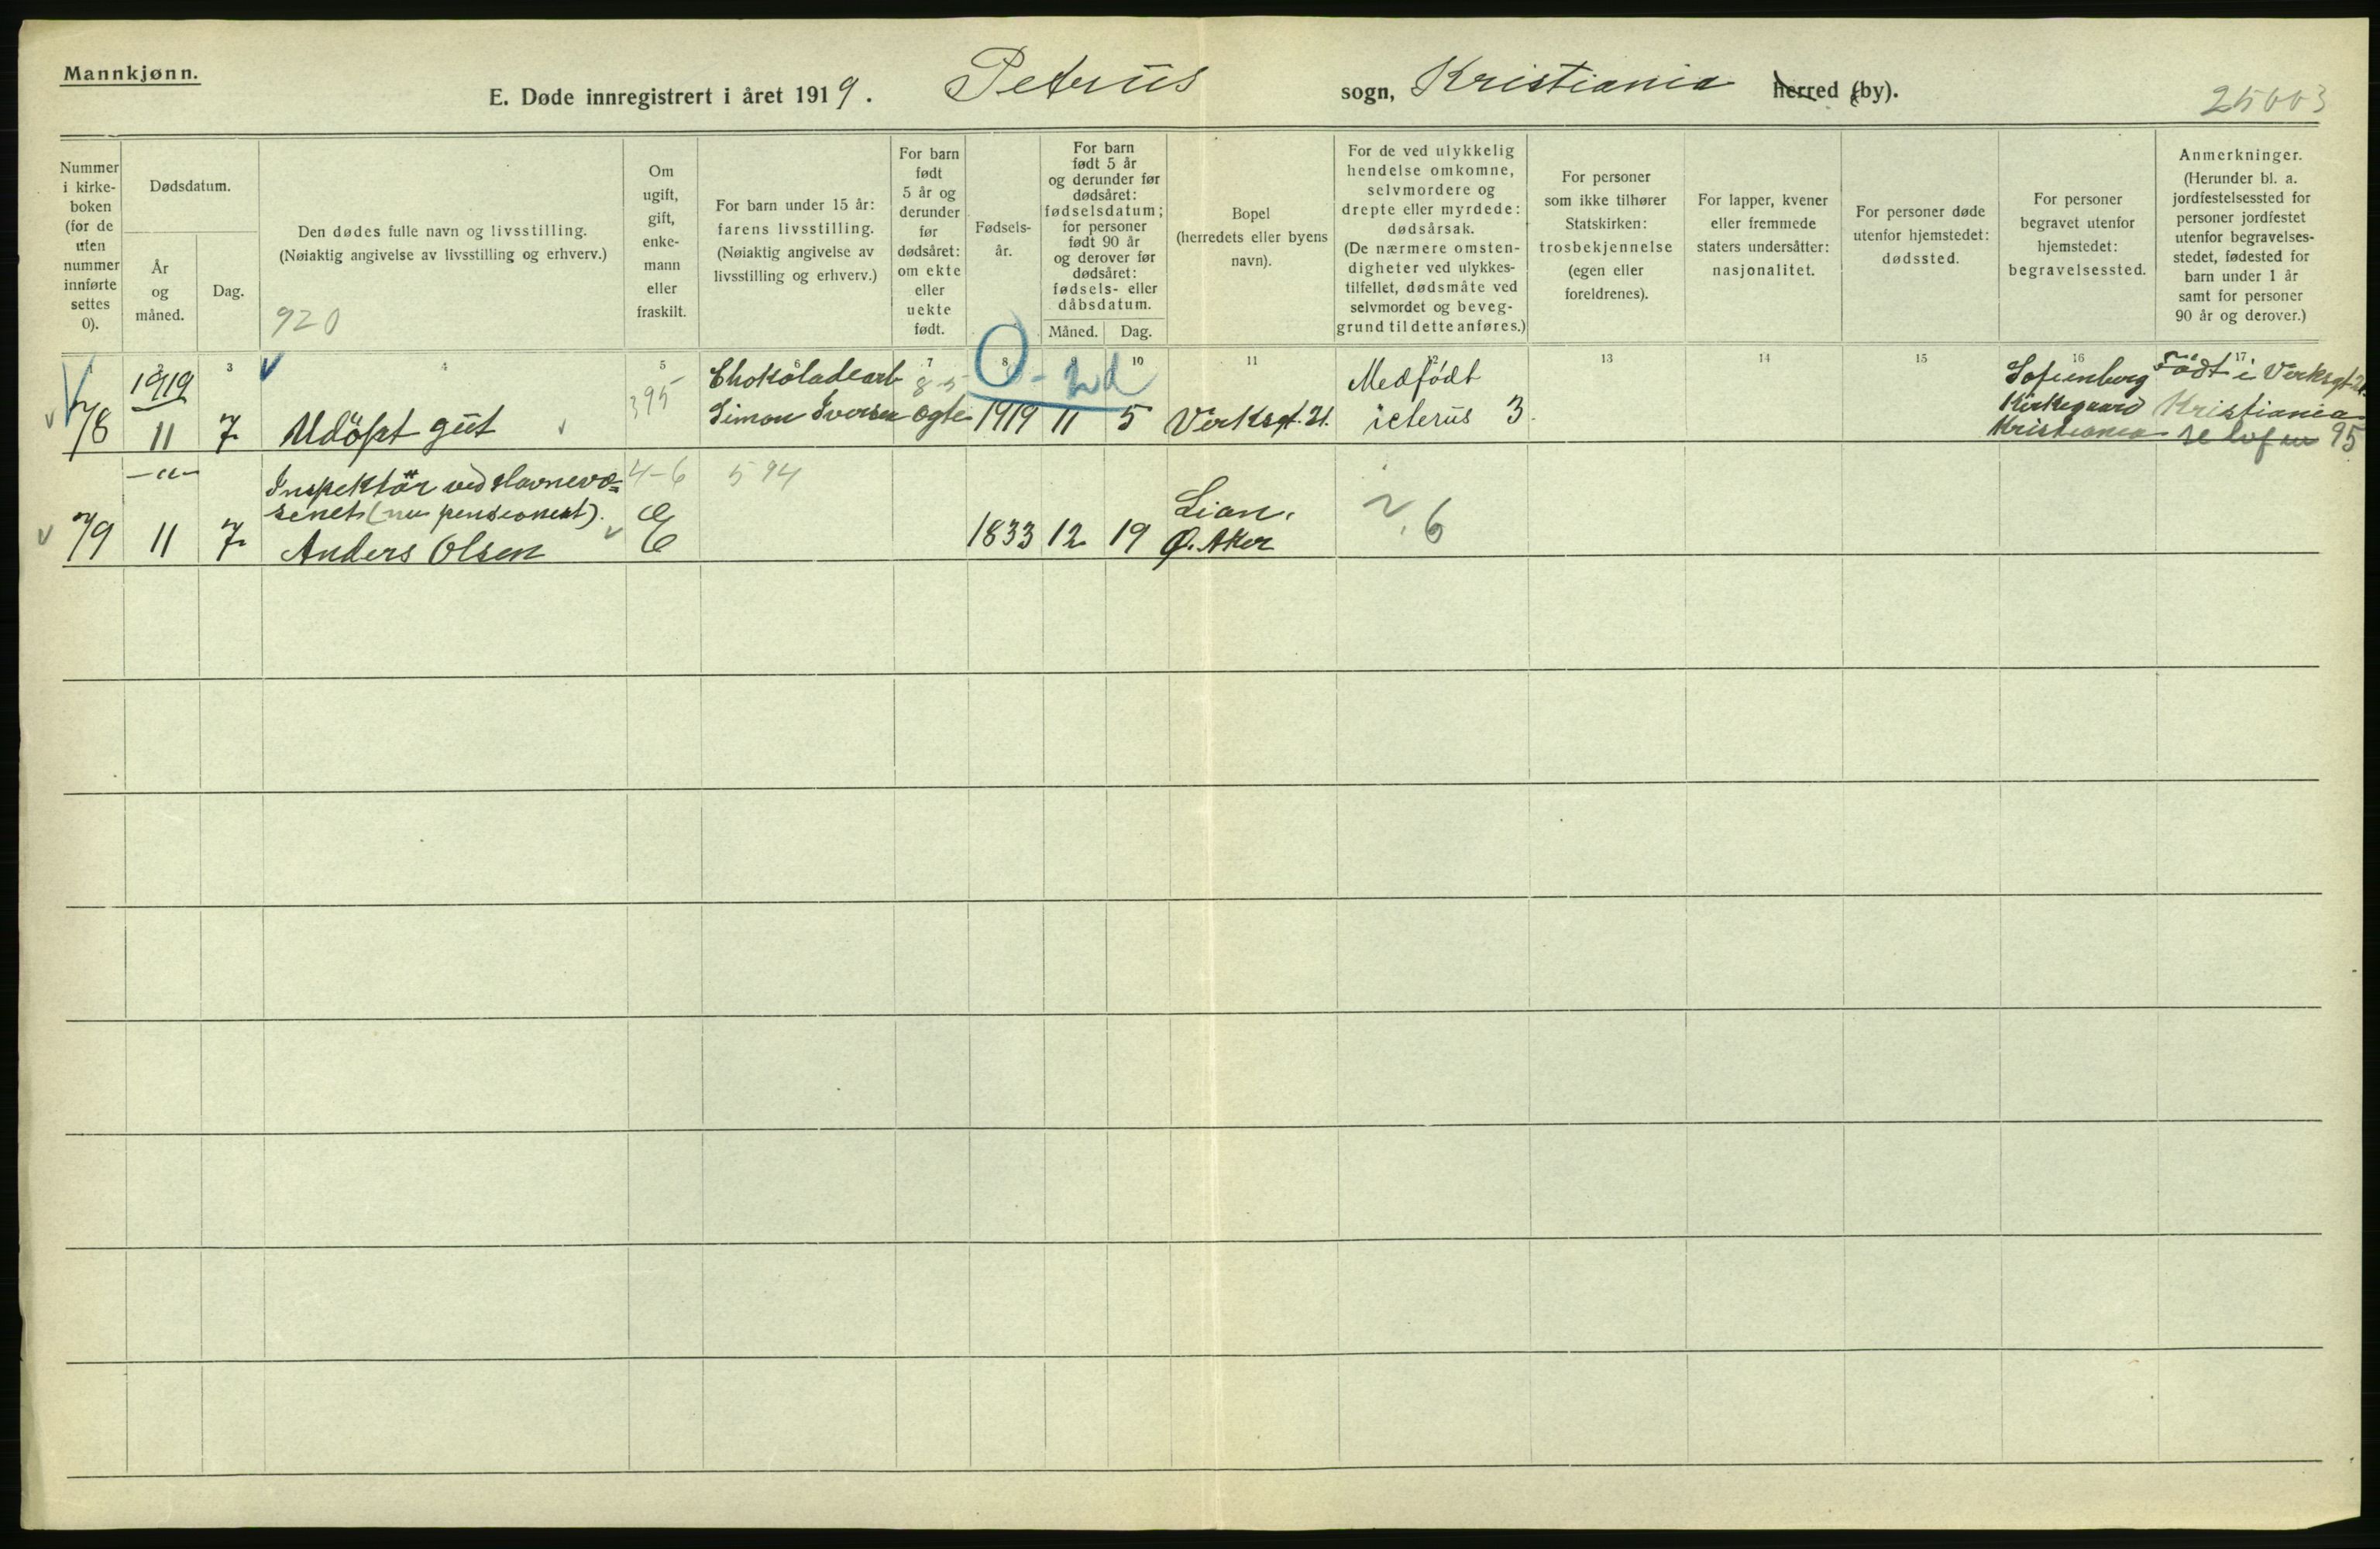 Mannkjønn.
E. Døde innregistrert i året 1919. Petrus sogn, Kristiania herred (by).
25003
Nummer i kirke-boken (for de uten nummer innførte settes 0).
Dødsdatum.
År og måned.
Dag.
Den dødes fulle navn og livsstilling.
(Nøiaktig angivelse av livsstilling og erhverv.)
920
Om ugift, gift, enke-mann eller fraskilt.
For barn under 15 år: farens livsstilling.
(Nøiaktig angivelse av livsstilling og erhverv.)
For barn født 5 år og derunder før dødsåret: om ekte eller uekte født.
Fødsels-år.
For barn født 5 år og derunder før dødsåret: fødselsdatum; for personer født 90 år og derover før dødsåret: fødsels- eller dåbsdatum.
Måned. Dag.
Bopel (herredets eller byens navn).
For de ved ulykkelig hendelse omkomne, selvmordere og drepte eller myrdede: dødsårsak.
(De nærmere omsten-digheter ved ulykkes-tilfellet, dødsmåte ved selvmordet og beveg-grund til dette anføres.)
For personer som ikke tilhører Statskirken: trosbekjennelse (egen eller foreldrenes).
For lapper, kvener eller fremmede staters undersåtter: nasjonalitet.
For personer døde utenfor hjemstedet: dødssted.
For personer begravet utenfor hjemstedet: begravelsessted.
Anmerkninger.
(Herunder bl. a. jordfestelsessted for personer jordfestet utenfor begravelses-stedet, fødested for barn under 1 år samt for personer 90 år og derover.)
3 4 5 6 7 8 9 10 11 12 13 14 15 16 17
78 1919 11 7 Udöpt gut 395 Chokoladearb. Simon Iversen 8-5 ogte 0-2d 1919 11 5 Verksgt. 21. Medfödt icterus 3. Sofienberg Kirkegaard Kristiania Födt i Verksgt 21. Kristiania 95
79 -"- 11 7 Inspektör ved Havnevæ=
senet (nu pensionert).
Anders Olsen 4-6 E 594 1833 12 19 Lian.
Ø. Aker 6